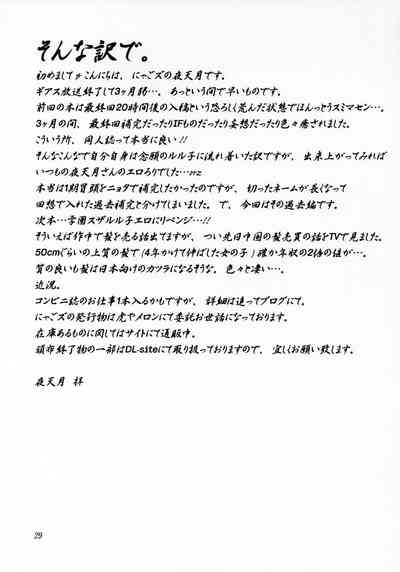 そんな訳で。
初めまして&こんにちは、にゃごズの夜天月です。
ギアス放送終了して3ヶ月弱…、あっという間で早いものです。
前回の本は最終回20時間後の入稿という恐ろしく荒んだ状態でほんっとうスミマセン…。
3ヶ月の間、最終回補完だったりIFものだったり妄想だったり色々癒されました。
こういう所、同人誌って本当に良い!!
そんなこんなで自分自身は念願のルル子に流れ着いた訳ですが、出来上がってみれば
いつもの夜天月さんのエロろりでした…orz
本当は1期冒頭をニョタで補完したかったのですが、切ったネームが長くなって
回想で入れた過去補完と分けてしまいました。で、今回はその過去編です。
次本…学園スザルル子エロにリベンジ…!!
そういえば作中で髪を売る話出てますが、つい先日中国の髪売買の話をTVで見ました。
50cmぐらいの上質の髪で(4年かけて伸ばした女の子)確か年収の2倍の値が…。
質の良いも髪は日本向けのカツラになるそうな。色々と凄い…。
近況。
コンビニ誌のお仕事1本入るかもですが、詳細は追ってブログにて。
にゃごズの発行物は虎やメロンにて委託お世話になっております。
在庫あるものに関してはサイトにて通販中。
頒布終了物の一部はDL-siteにて取り扱っておりますので、宜しくお願い致します。
夜天月 祥
29